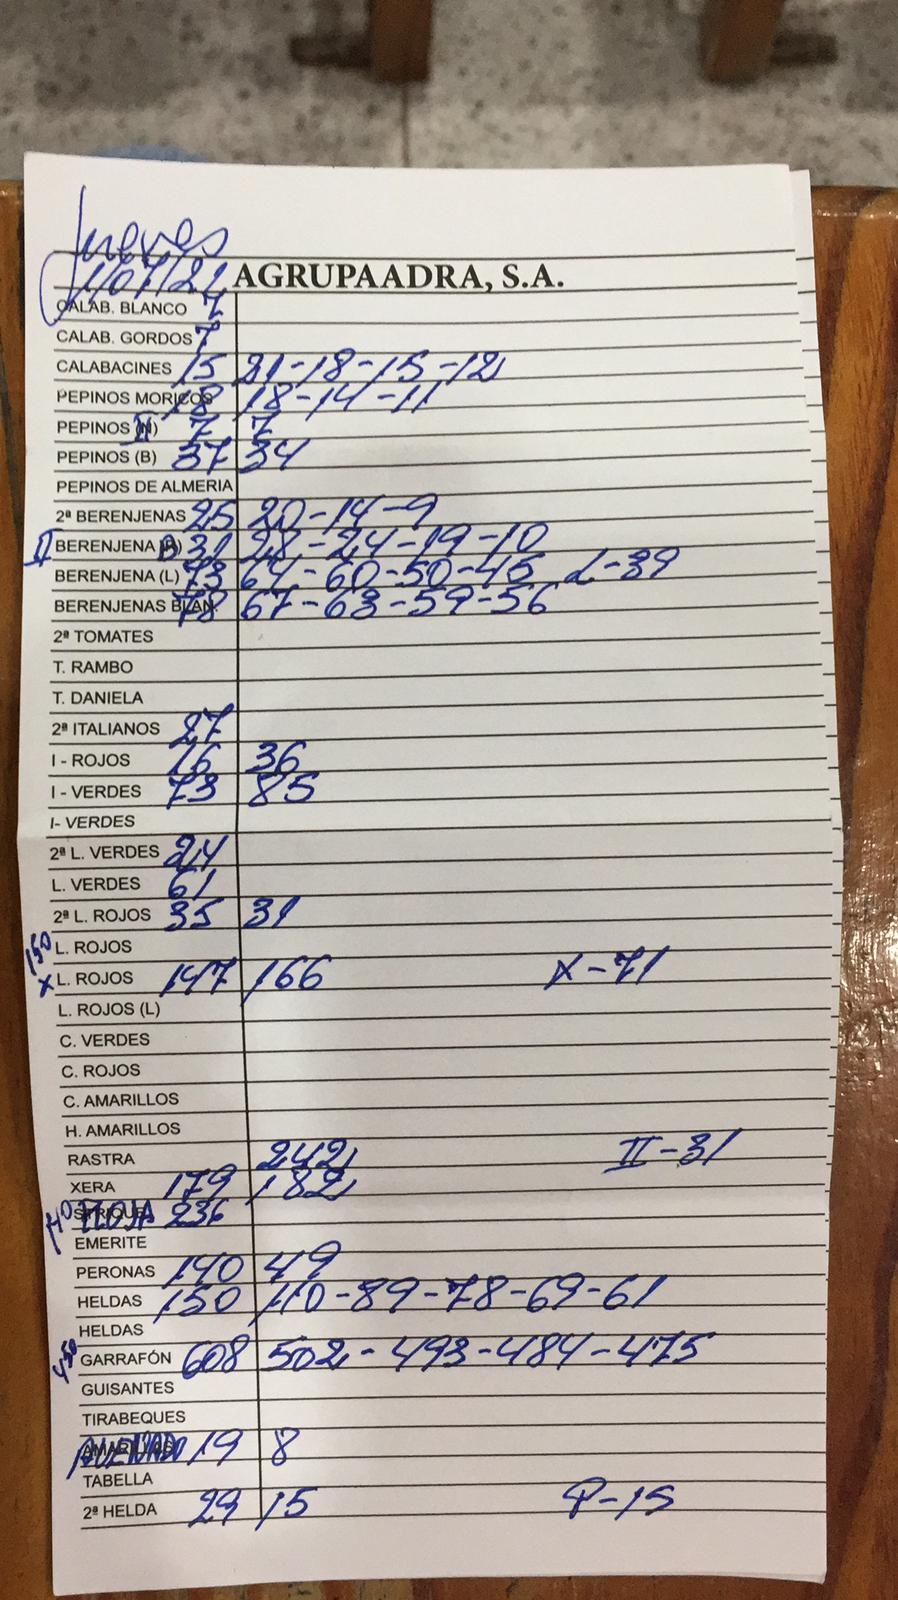 Jueves
1/07/21 AGRUPAADRA, S.A.
CALAB. BLANCO 7
CALAB. GORDOS 7
CALABACINES 15 21-18-15-12
PEPINOS MORICOS 18 18-14-11
PEPINOS (N) 7 7
PEPINOS (B) 37 34
PEPINOS DE ALMERIA
2ª BERENJENAS 25 20-14-9
II BERENJENA B 31 28-24-19-10
BERENJENA (L) 73 64-60-50-45 L-39
BERENJENAS BLAN. 78 67-63-59-56
2ª TOMATES
T. RAMBO
T. DANIELA
2ª ITALIANOS 27
I - ROJOS 16 36
I - VERDES 73 85
I- VERDES
2ª L. VERDES 24
L. VERDES 61
2ª L. ROJOS 35 31
150 L. ROJOS
X L. ROJOS 147 166 X-71
L. ROJOS (L)
C. VERDES
C. ROJOS
C. AMARILLOS
H. AMARILLOS
RASTRA 242 II-31
XERA 179 182
PLOJA 236
EMERITE
PERONAS 140 49
HELDAS 150 110-89-78-69-61
HELDAS
450 GARRAFÓN 608 502-493-484-475
GUISANTES
TIRABEQUES
19 8
TABELLA
2ª HELDA 29 15 P-15